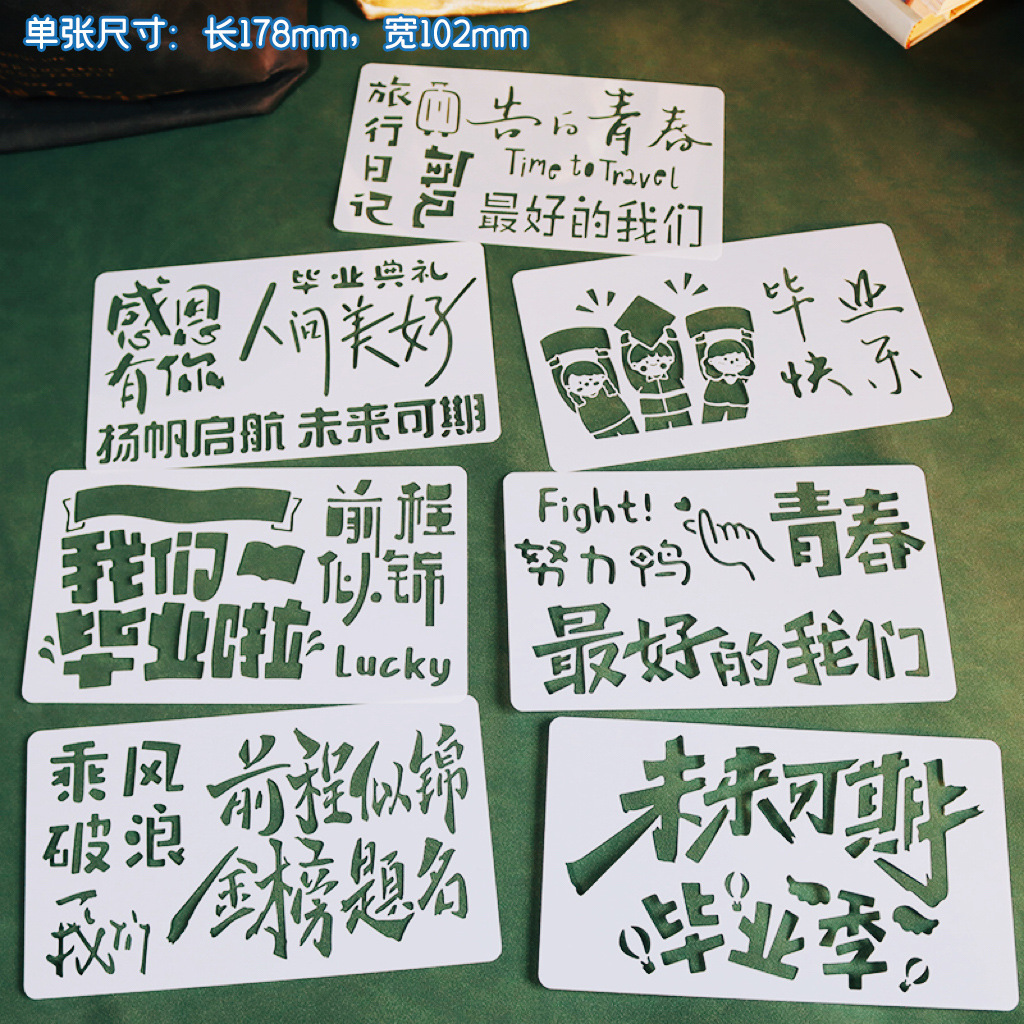 单张尺寸：长178mm，宽102mm
旅行日记
告白青春
Time to Travel
最好的我们
毕业典礼
感恩有你
人间美好
扬帆启航 未来可期
毕业
快乐
我们
毕业啦
前程
似锦
Lucky
Fight!
努力鸭
青春
最好的我们
乘风
破浪
我们
前程似锦
金榜题名
未来可期
毕业季